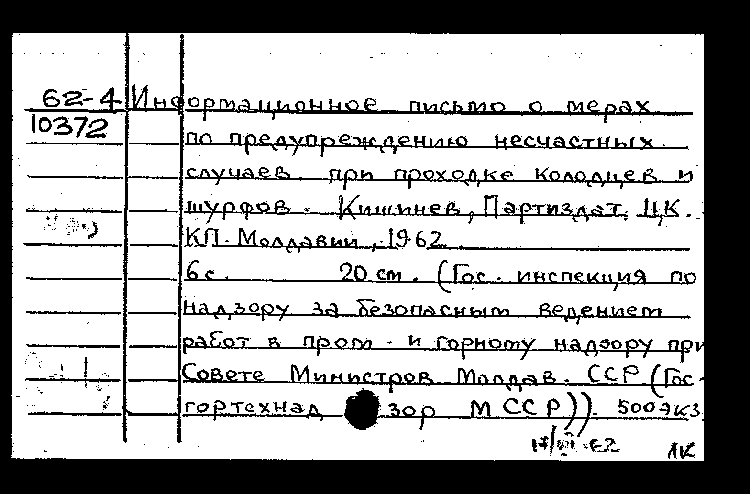 62-4 Информационное письмо о мерах
10372 по предупреждению несчастных
случаев при проходке колодцев и
шурфов. Кишинев, Партиздат ЦК.
КП. Молдавии, 1962
6 с. 20 см. (Гос. инспекция по
надзору за безопасным ведением
работ в пром. и горному надзору при
Совете Министров Молдав. ССР (Гос-
гортехнадзор МССР)). 500 экз.
62 ЛК